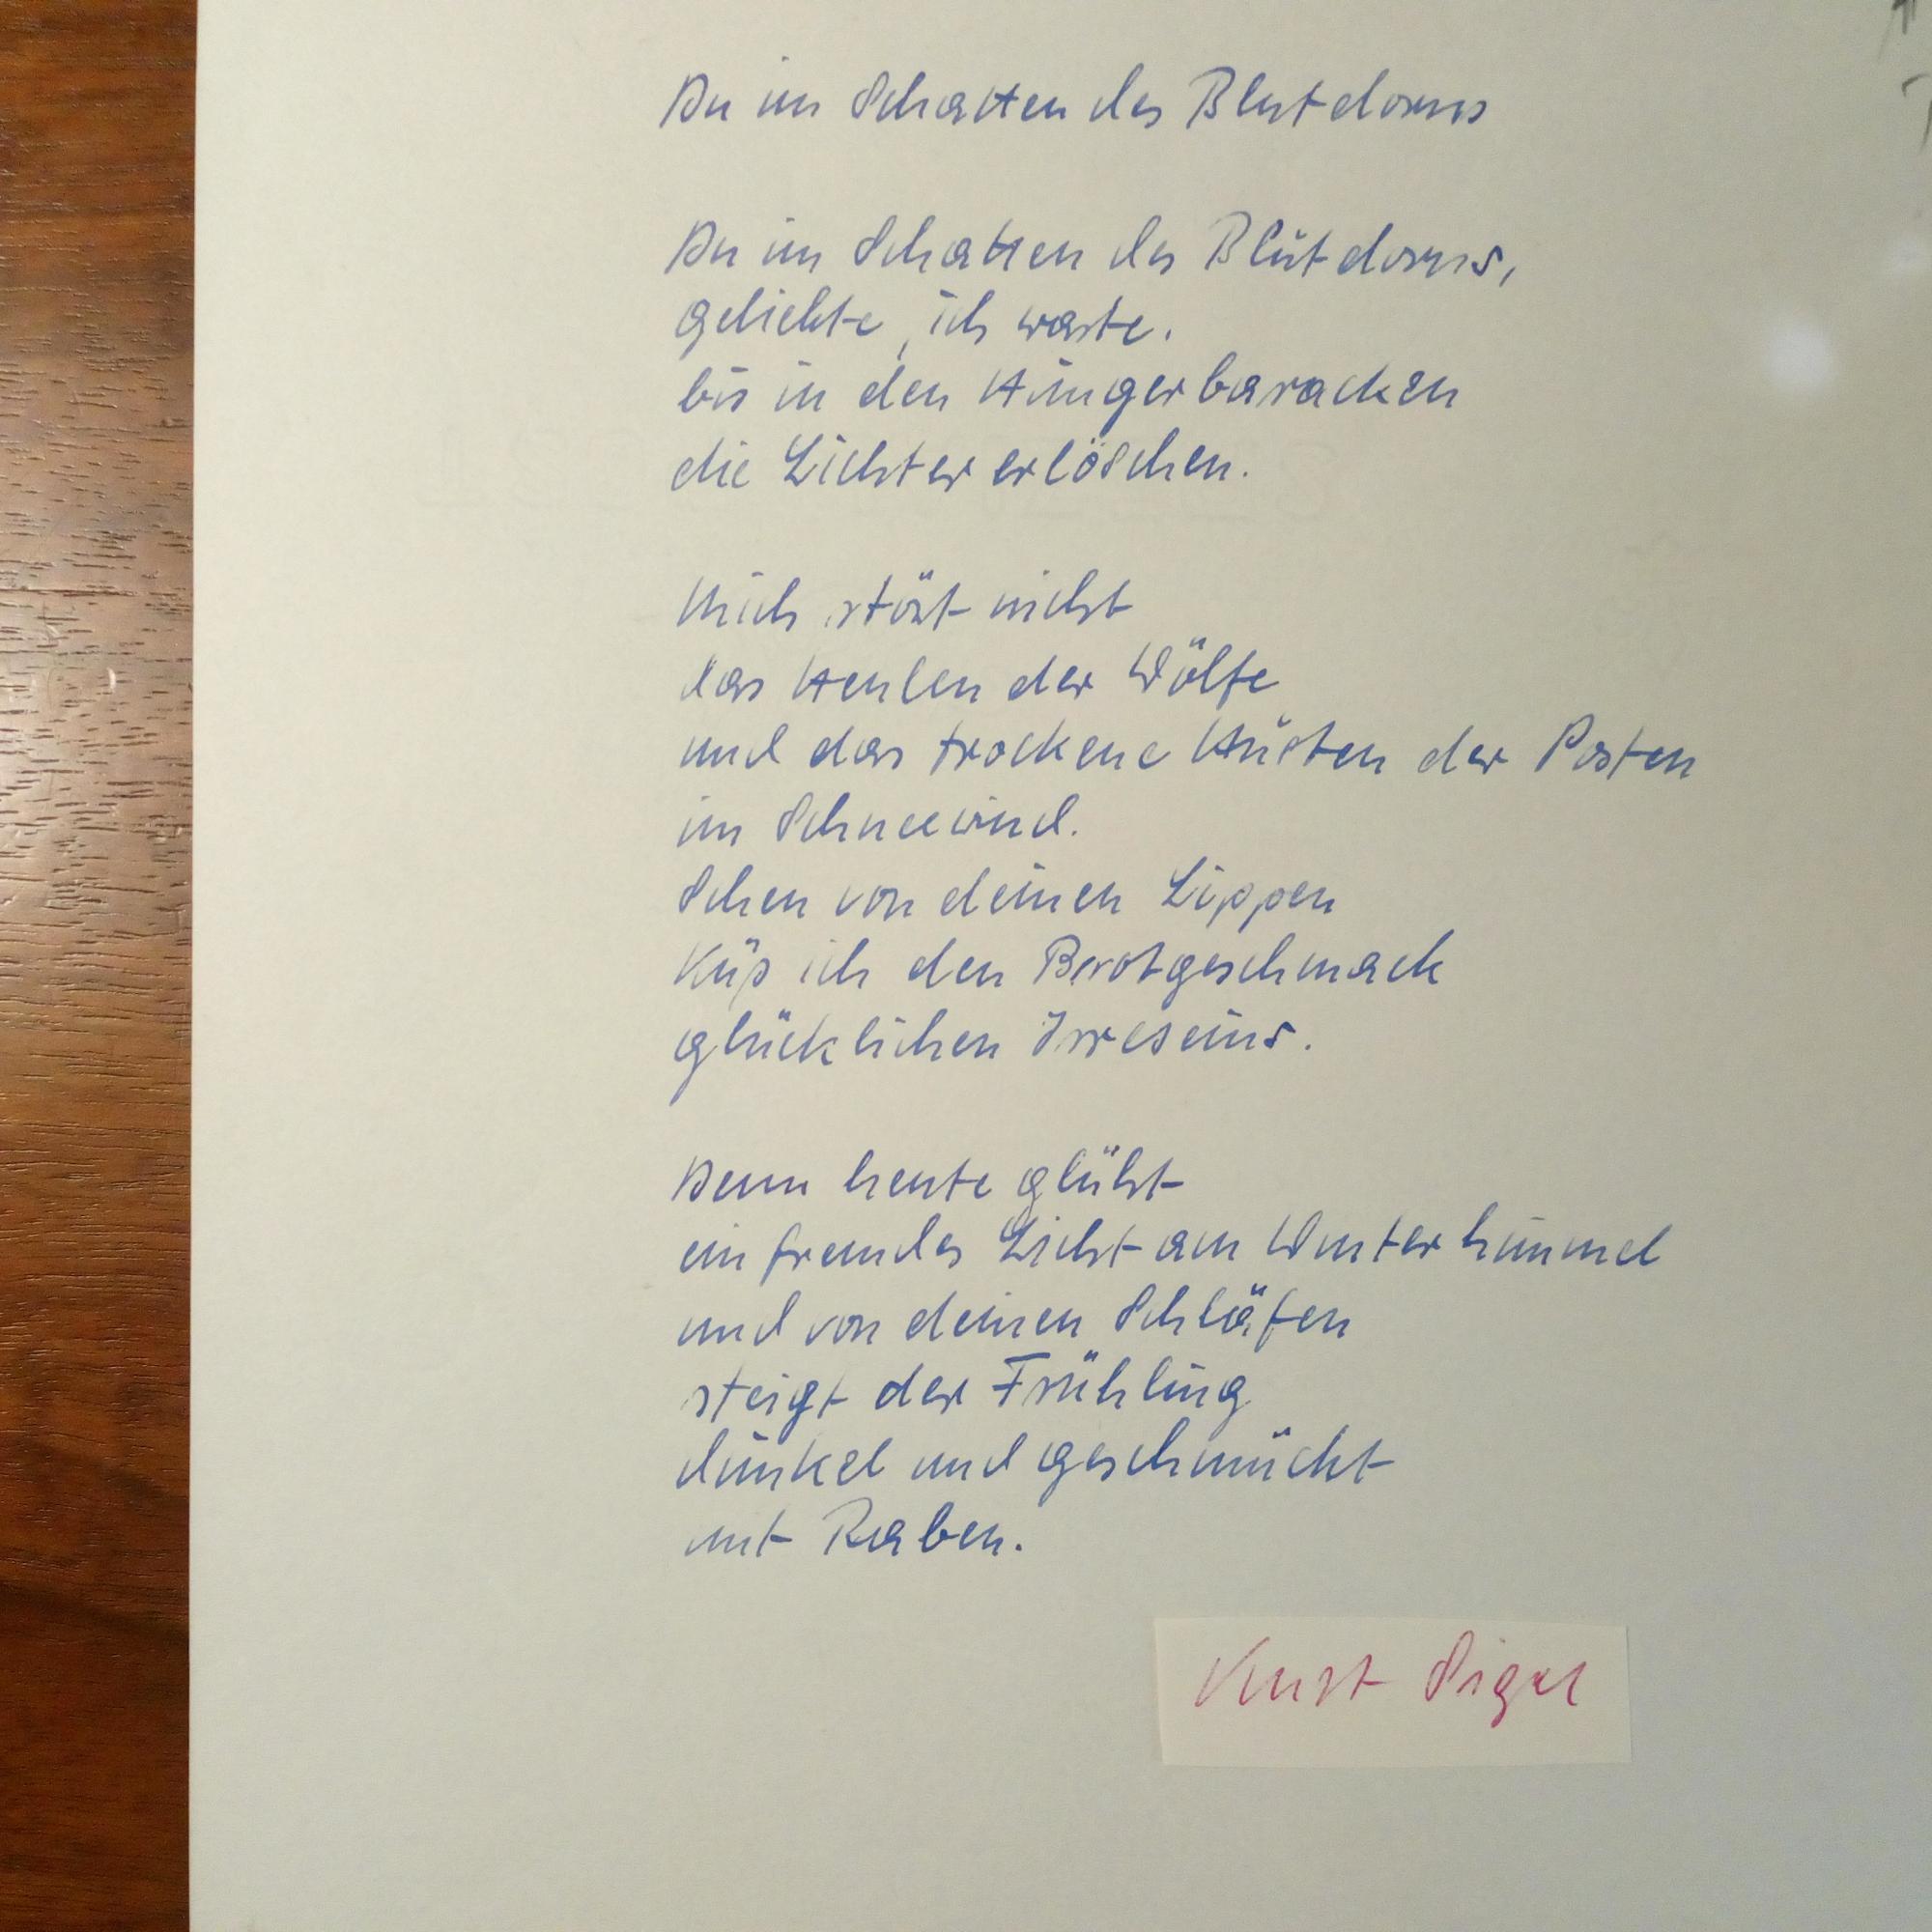 Du im Schatten des Blutdorns
Du im Schatten des Blutdorns,
geliebte, ich warte.
bis in den Hungerbaracken
die Lichter erlöschen.
Mich stört nicht
das Heulen der Wölfe
und das trockene Husten der Posten
im Schneewind.
Scheu von deinen Lippen
Küß ich den Brotgeschmack
glücklichen Irreseins.
Denn heute glüht
ein fremdes Licht am Winterhimmel
und von deinen Schläfen
steigt der Frühling
dunkel und geschmückt
mit Raben.
Kurt Sigel